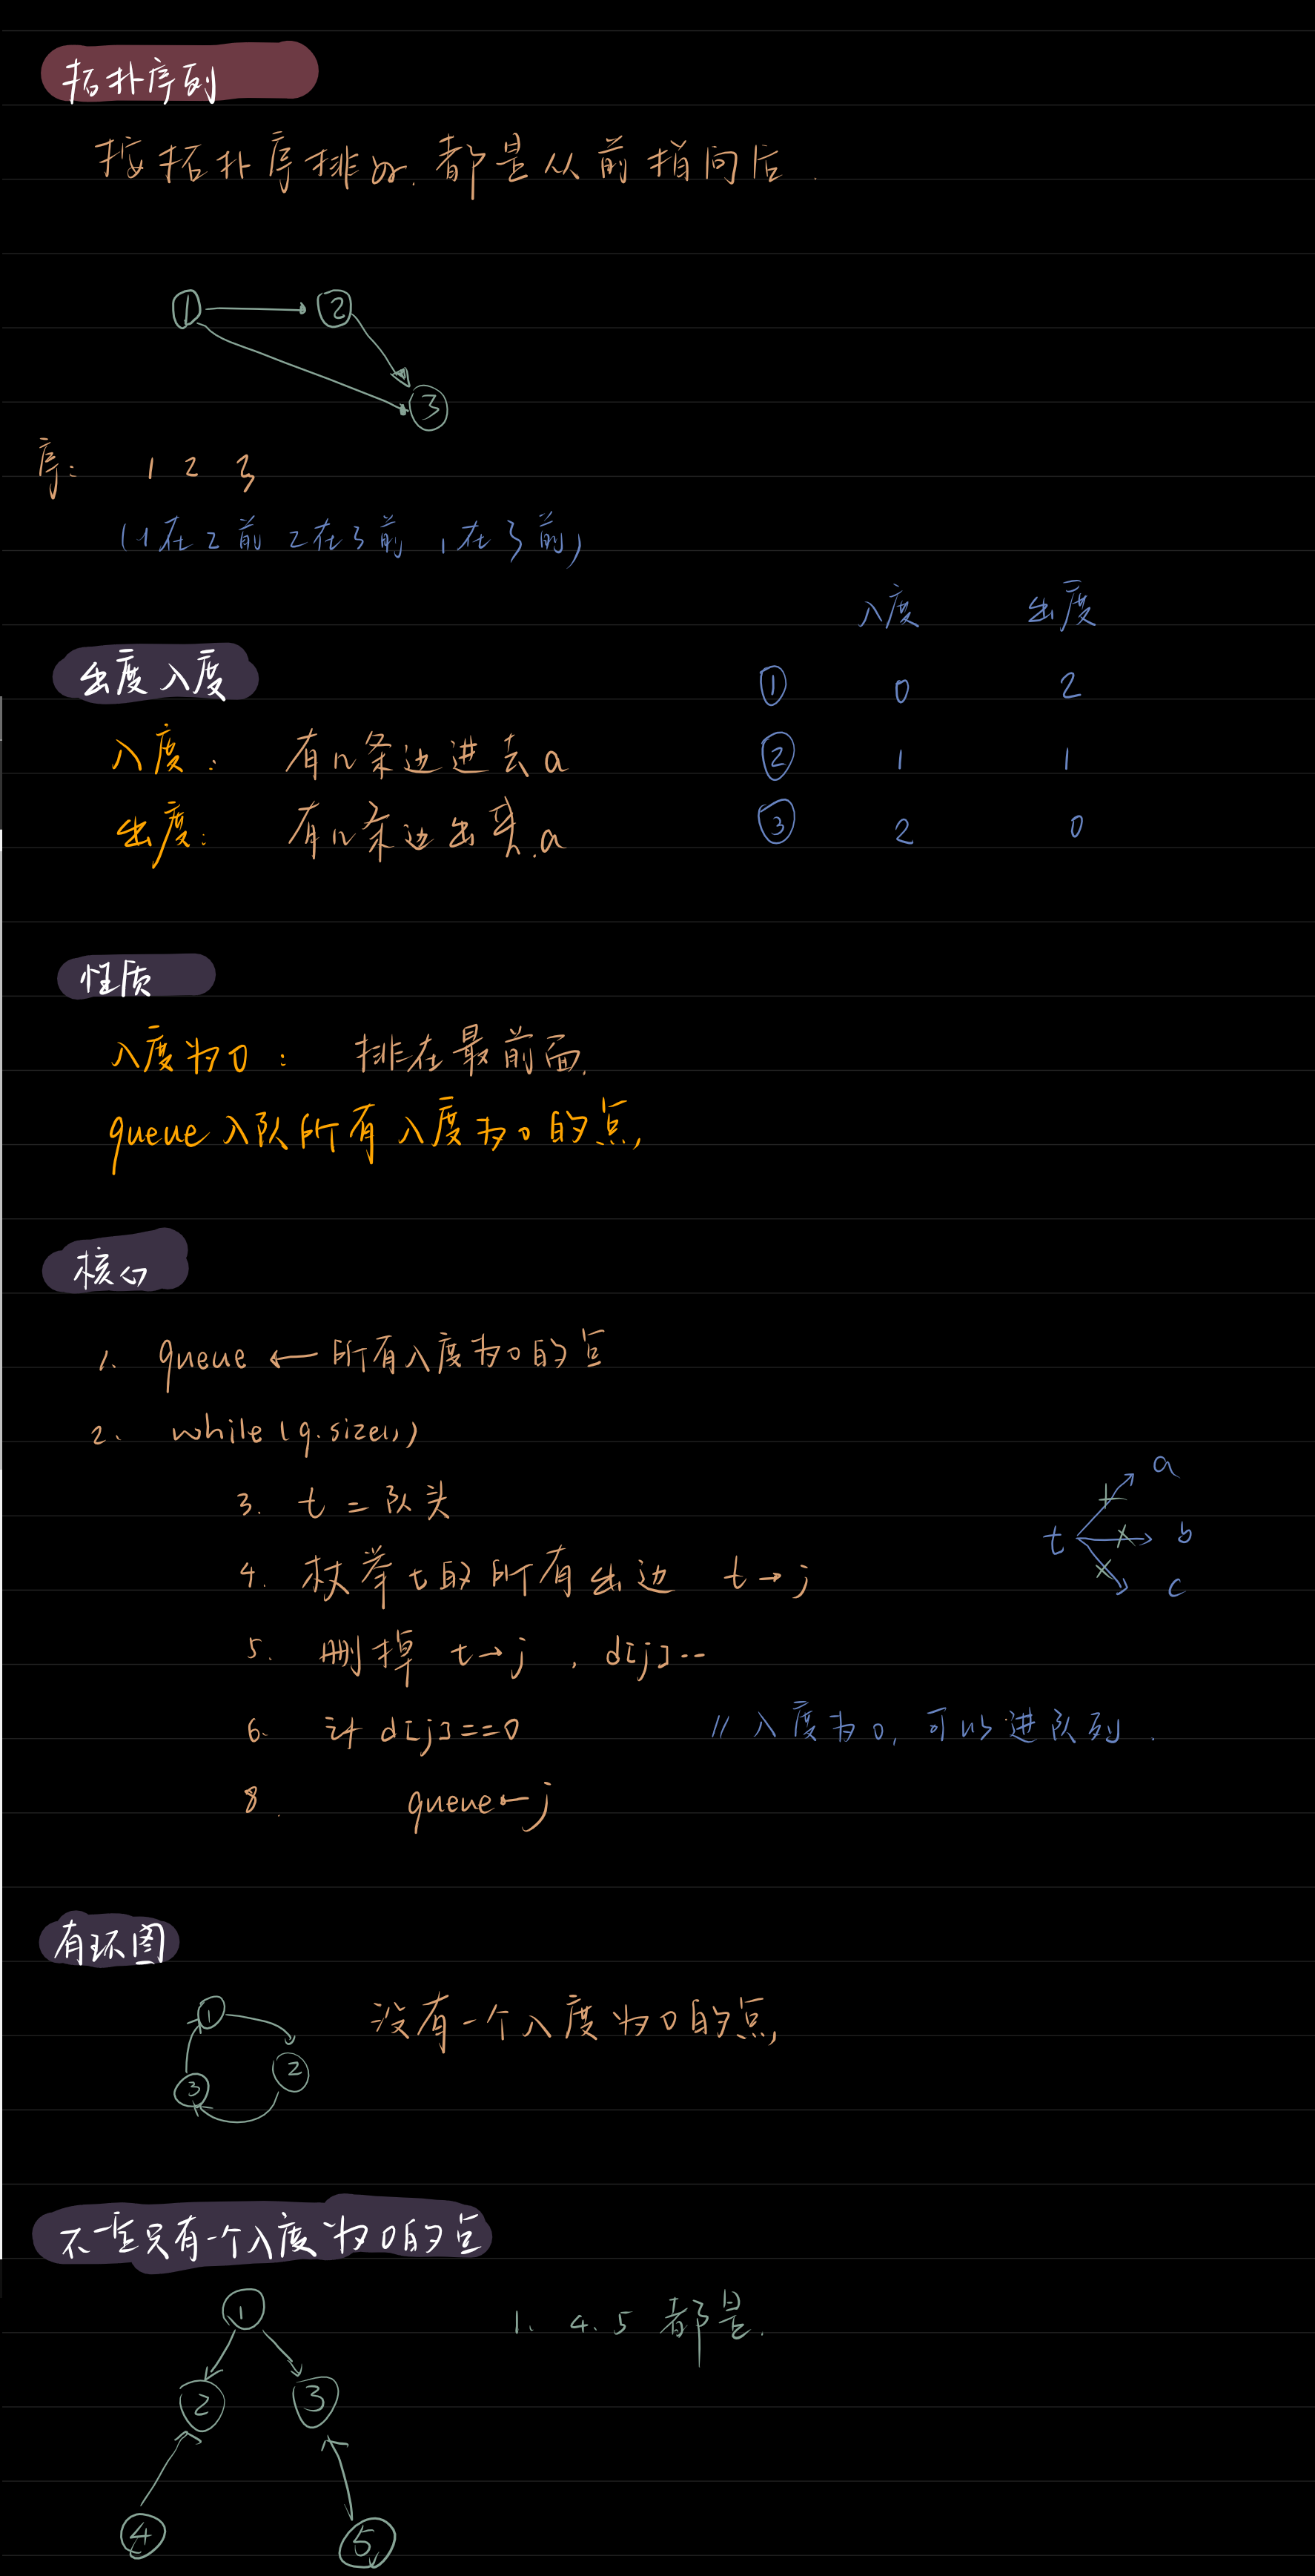 拓扑序列
按拓扑序排好.都是从前指向后.
1 2
3
序: 1 2 3
(1在2前 2在3前 1在3前)
入度 出度
出度入度
① 0 2
入度: 有几条边进去a
② 1 1
出度: 有几条边出来.a
③ 2 0
性质
入度为0: 排在最前面.
queue 入队所有入度为0的点,
核心
1. queue ← 所有入度为0的点
2. while(q.size())
3. t = 队头
4. 枚举t的所有出边 t→j
5. 删掉 t→j , d[j]--
6. d[j]==0 // 入度为0, 可以进队列.
8. queue←j
t a
b
c
有环图
没有一个入度为0的点,
1
2
3
不一定只有一个入度为0的点
1
1. 4. 5 都是.
2 3
4 5